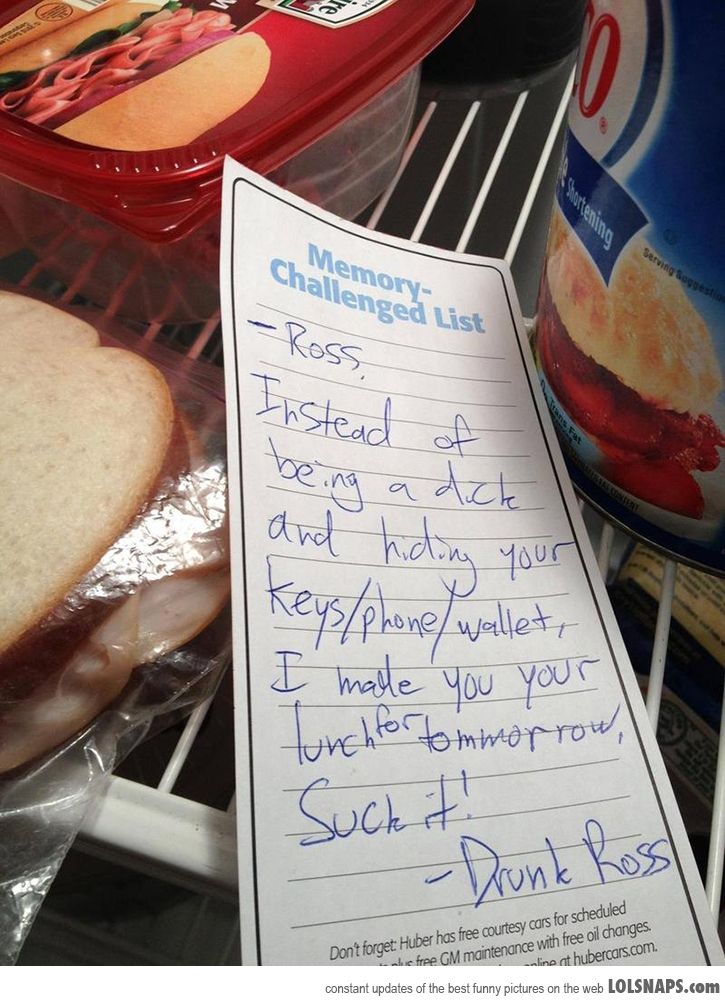 Memory-
Challenged List
- Ross,
Instead of
being a dick
and hiding your
keys/phone/wallet,
I made you your
lunch for tommorrow,
Suck it!
- Drunk Ross
Don't forget: Huber has free courtesy cars for scheduled
plus free GM maintenance with free oil changes.
online at hubercars.com.
Shortening
Serving Suggestion
Trans Fat
constant updates of the best funny pictures on the web LOLSNAPS.com